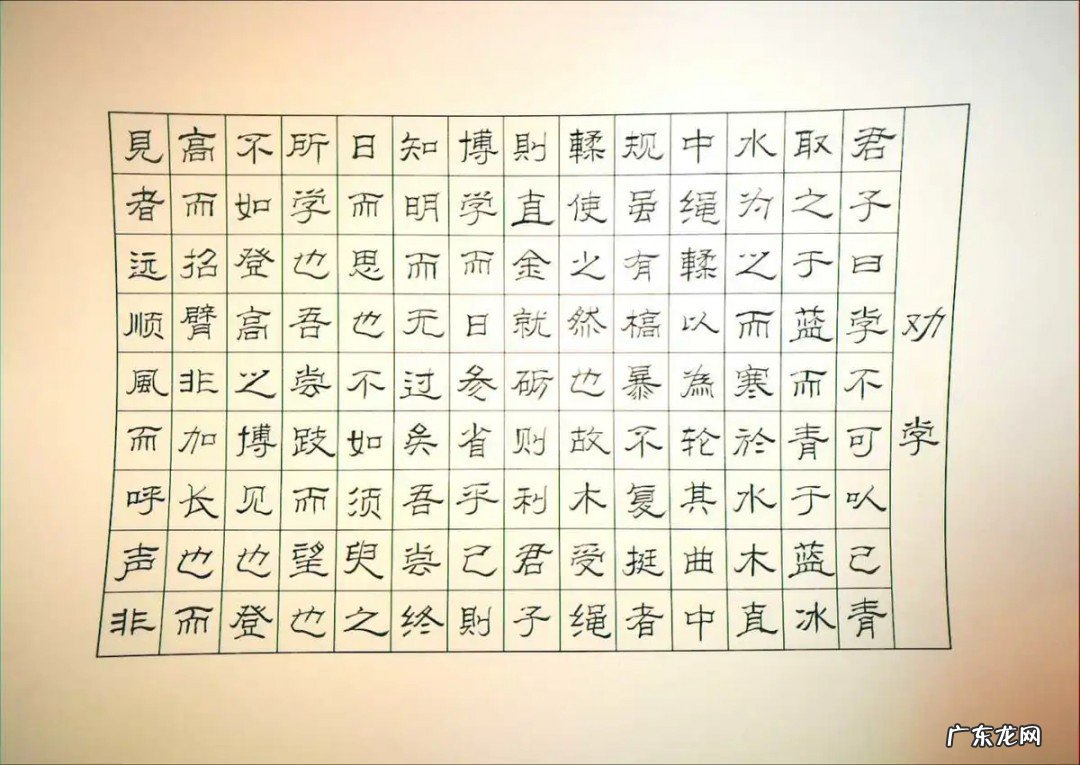 劝学
君子曰学不可以己青
取之于蓝而青于蓝冰
水为之而寒於水木直
中绳輮以為轮其曲中
规虽有槁暴不复挺者
輮使之然也故木受绳
則直金就砺则利君子
博学而日参省乎己則
知明而无过矣吾尝终
日而思也不如须臾之
所学也吾尝跂而望也
不如登高之博见也登
高而招臂非加长也而
見者远顺風而呼声非
广东龙网